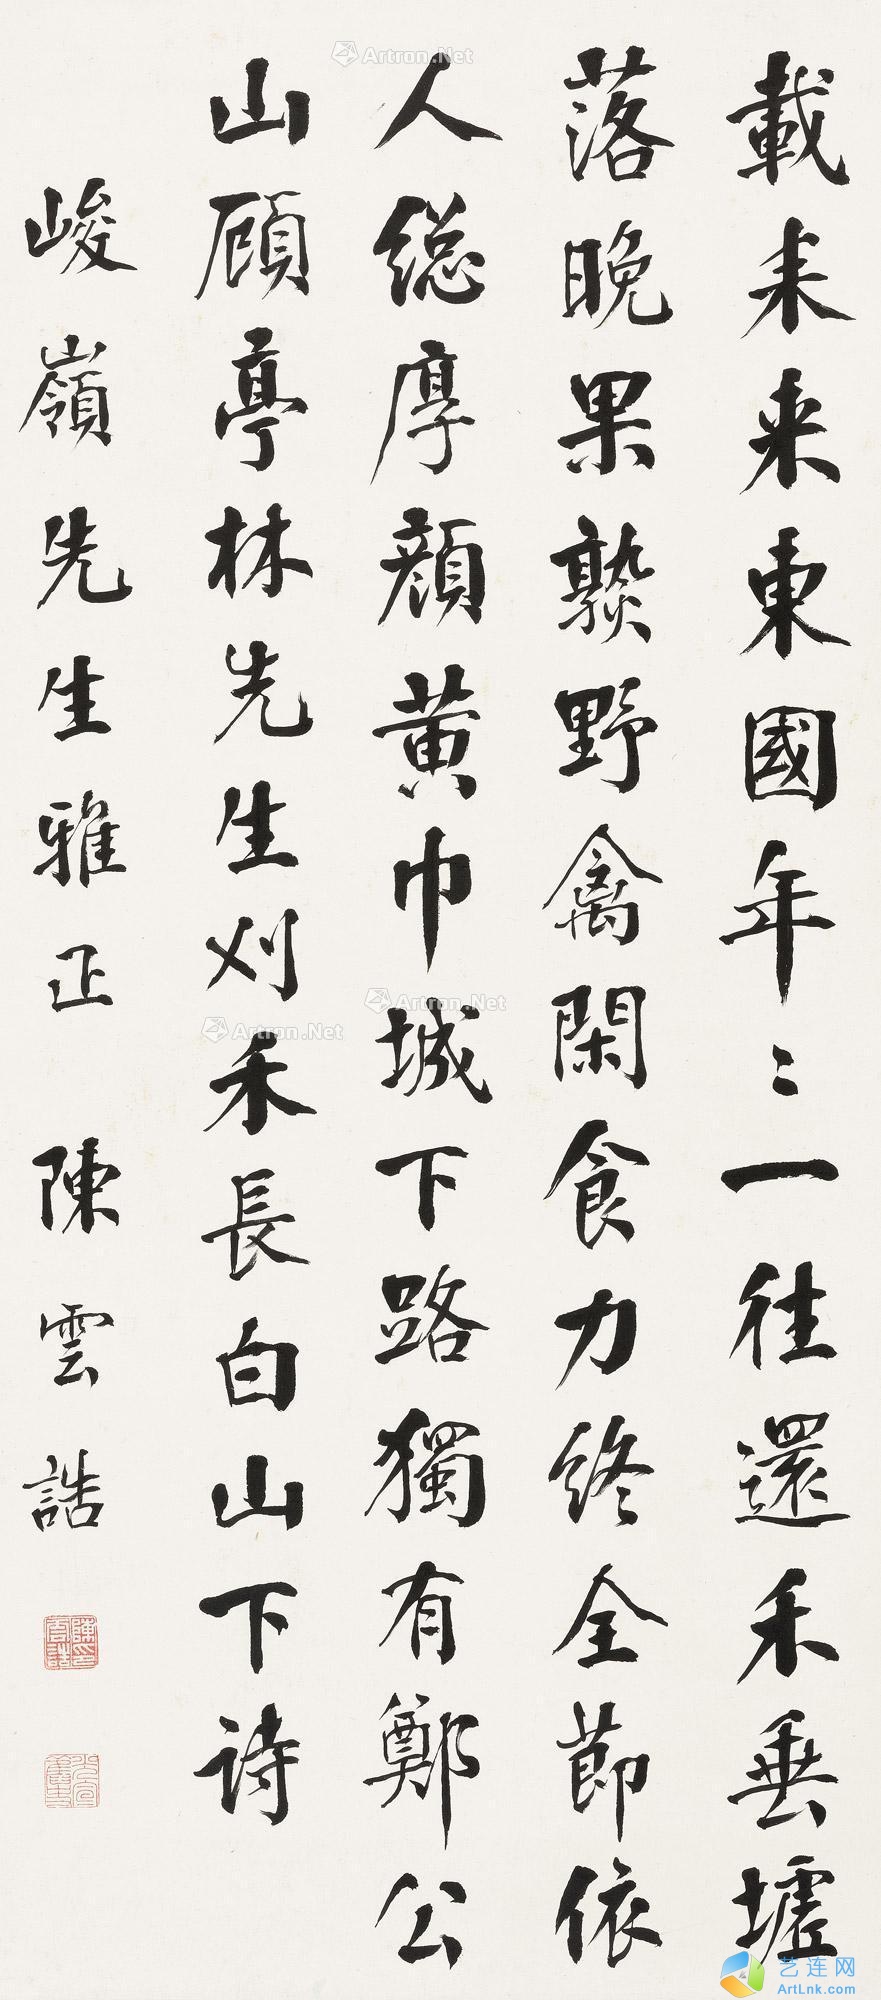 載耒来東國年〻一往還禾垂墟
落晚果熟野禽閑食力終全節依
人總厚顏黄巾城下路獨有鄭公
山顧亭林先生刈禾長白山下诗
峻嶺先生雅正 陳雲誥
Artron.Net
Artron.Net
Artron.Net
艺连网
ArtLnk.com